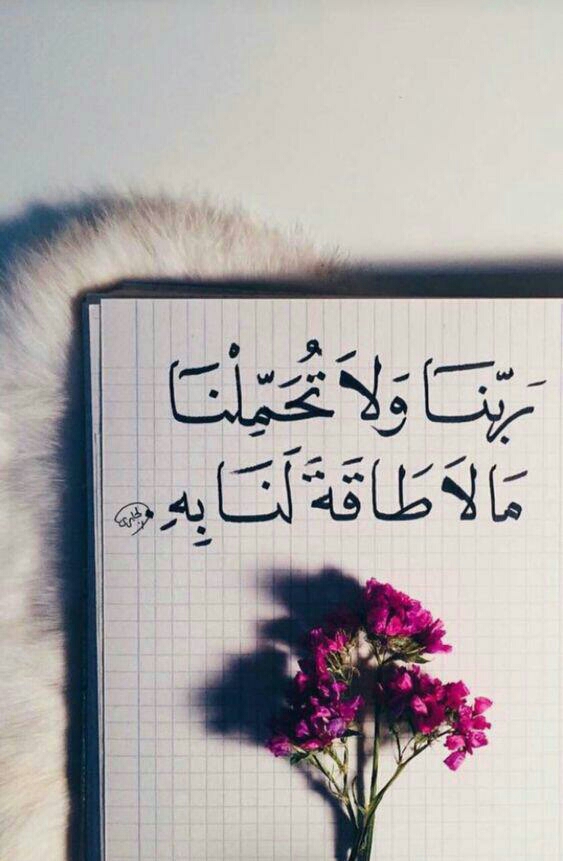 رَبَّنَا وَلاَ تُحَمِّلْنَا
مَالاَ طَاقَةَ لَنَا بِهِ